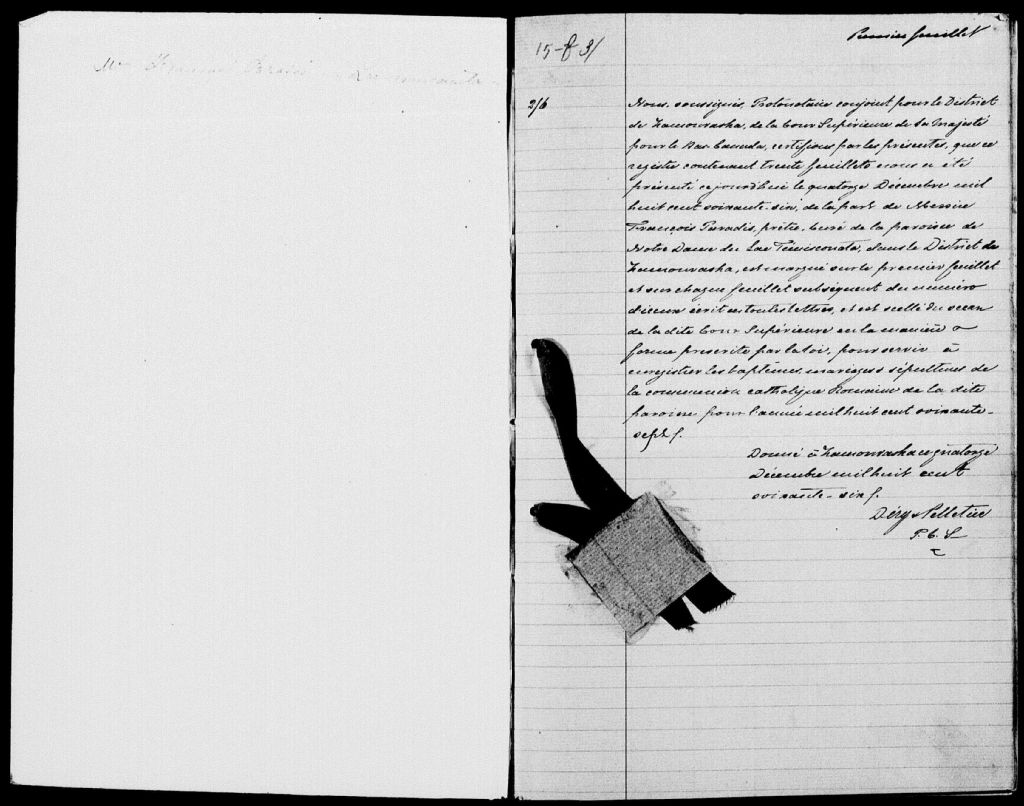 Mr François Paradis
Premier feuillet
15-f 31
2/6
Nous, soussignés, Protonotaire conjoint pour le District
de Kamouraska, de la Cour Supérieure de Sa Majesté
pour le Bas-Canada, certifions par les présentes, que ce
registre contenant trente feuillets nous a été
présenté ce jourd'hui le quatorze Décembre mil
huit cent soixante-six, de la part de Messire
François Paradis, prêtre, Curé de la paroisse de
Notre Dame du Lac Témisconata, dans le District de
Kamouraska, est marqué sur le premier feuillet
et sur chaque feuillet subséquent du numéro
d'iceux écrit en toutes lettres, et est scellé du sceau
de la dite Cour Supérieure en la manière &
forme prescrite par la loi, pour servir à
enregistrer les baptêmes, mariages & sépultures de
la communion catholique Romaine de la dite
paroisse pour l'année mil huit cent soixante-
sept.
Donné à Kamouraska ce quatorze
Décembre mil huit cent
soixante-six.
Déry & Pelletier
P. C. S